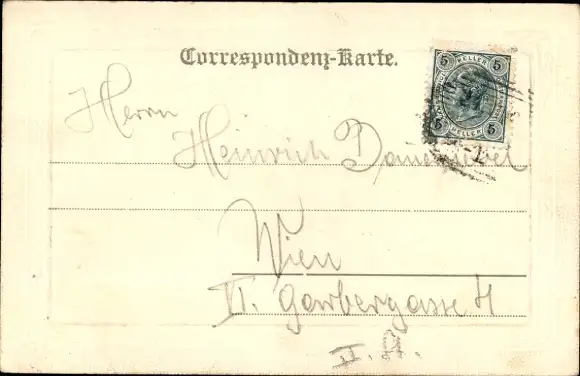 Correspondenz-Karte.
5 HELLER 5
5 HELLER 5
Herrn
Heinrich
Wien
VI. Garbergasse 4
II. St.